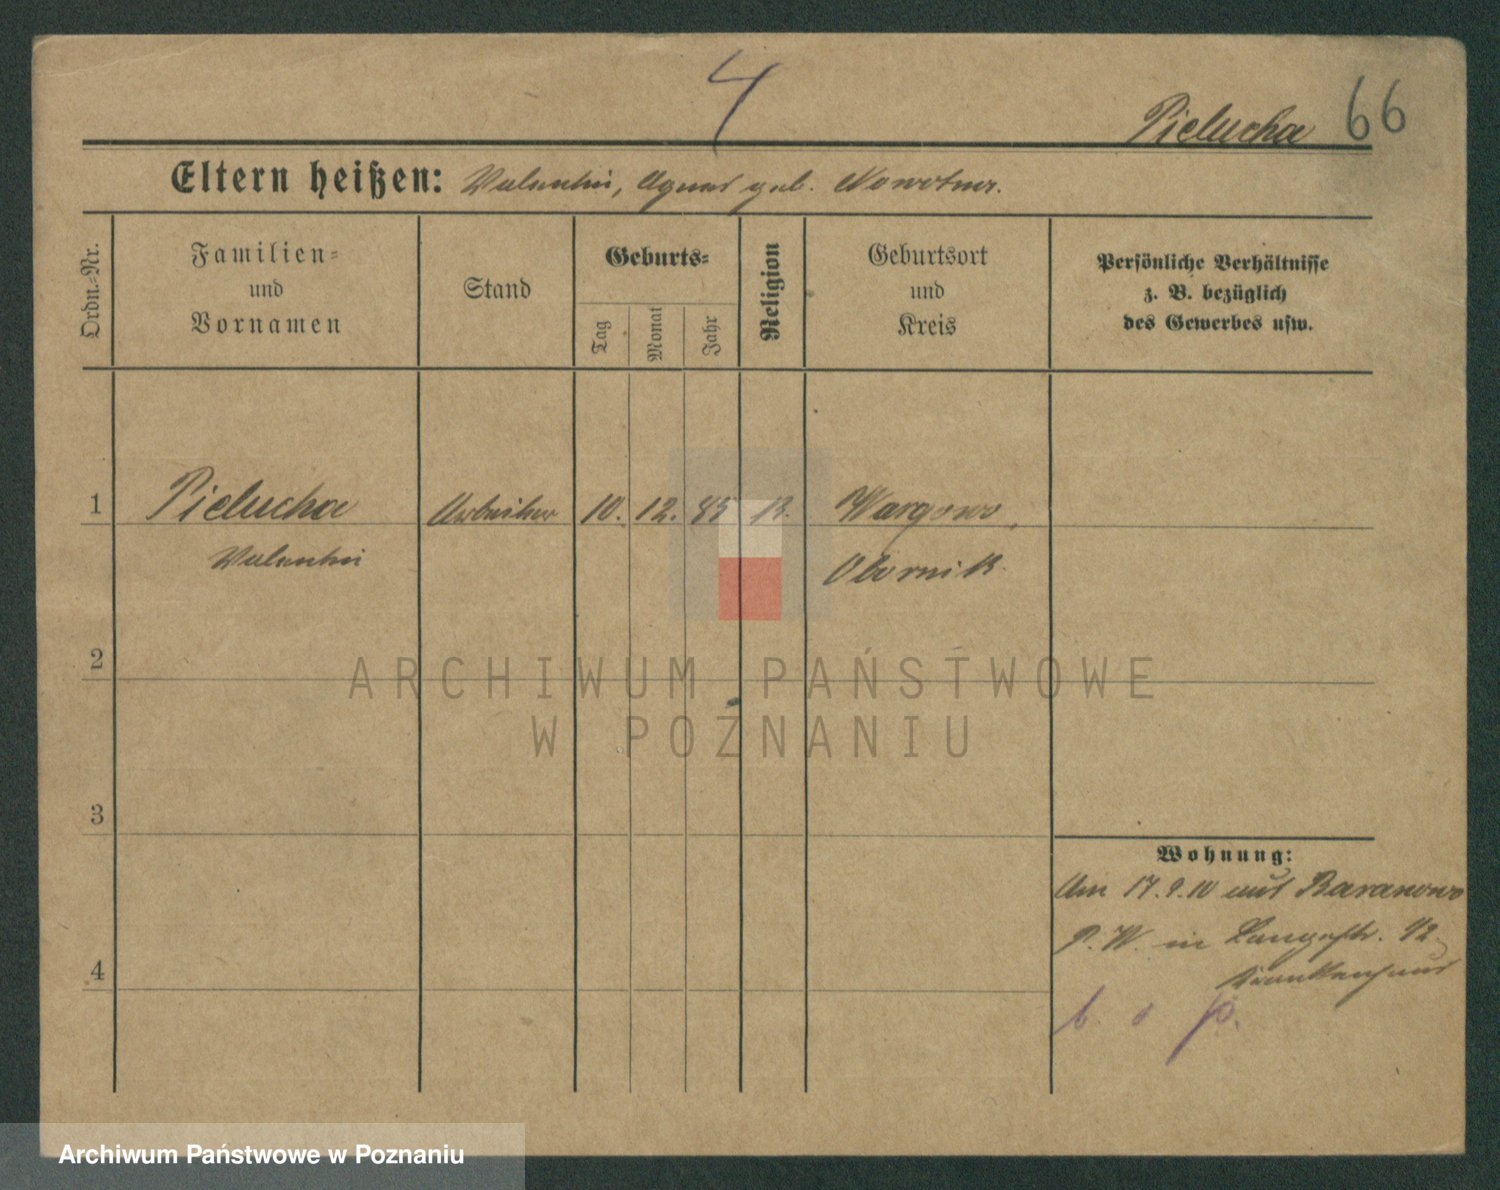 4
Pielucha 66
Eltern heißen: Valentin, Agnes geb. Nowotna.
Ordn.-Nr.
Familien-
und
Vornamen
Stand
Geburts-
Tag
Monat
Jahr
Religion
Geburtsort
und
Kreis
Persönliche Verhältnisse
z. B. bezüglich
des Gewerbes usw.
1 Pielucha Arbeiter 10. 12. 85 K. Wargowo,
Valentin Obornik
2
3
4
Wohnung:
Am 17.9.10 aus Baranowo
P. W. in Langestr. 42
Krankenhaus
ARCHIWUM PAŃSTWOWE
W POZNANIU
Archiwum Państwowe w Poznaniu